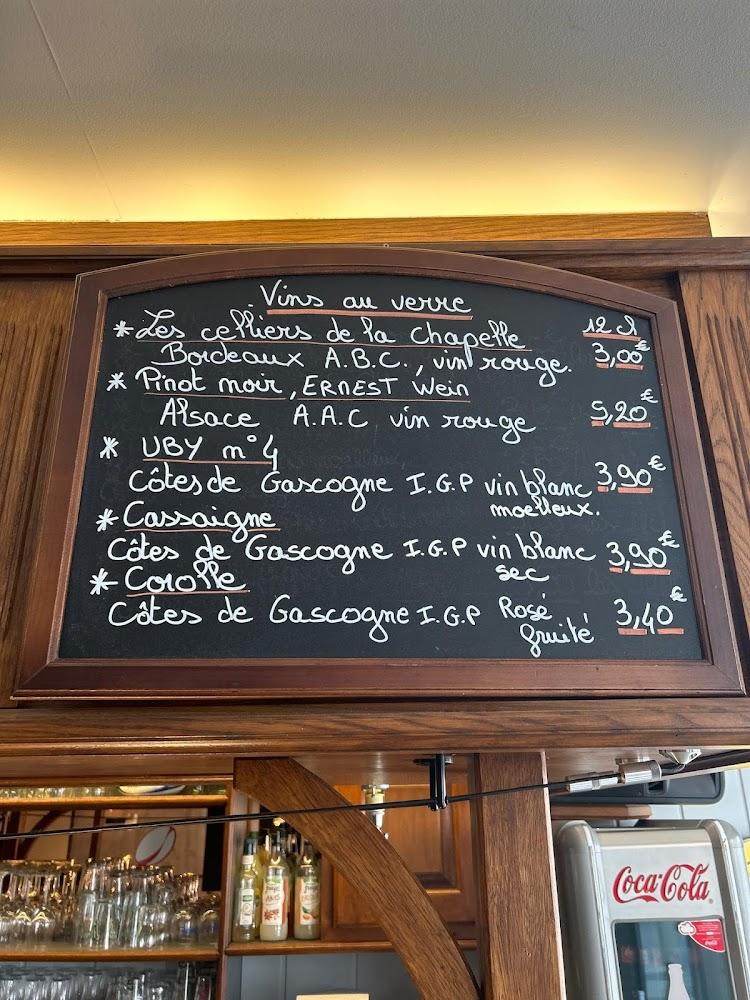 Vins au verre
* Les celliers de la Chapelle 12 cl
Bordeaux A.B.C., vin rouge. 3,00€
* Pinot noir, ERNEST Wein
Alsace A.A.C vin rouge 5,20€
* UBY n°4
Côtes de Gascogne I.G.P vin blanc 3,90€
moelleux.
* Cassaigne
Côtes de Gascogne I.G.P vin blanc 3,90€
sec
* Corolle
Côtes de Gascogne I.G.P Rosé 3,40€
fruité
Coca-Cola